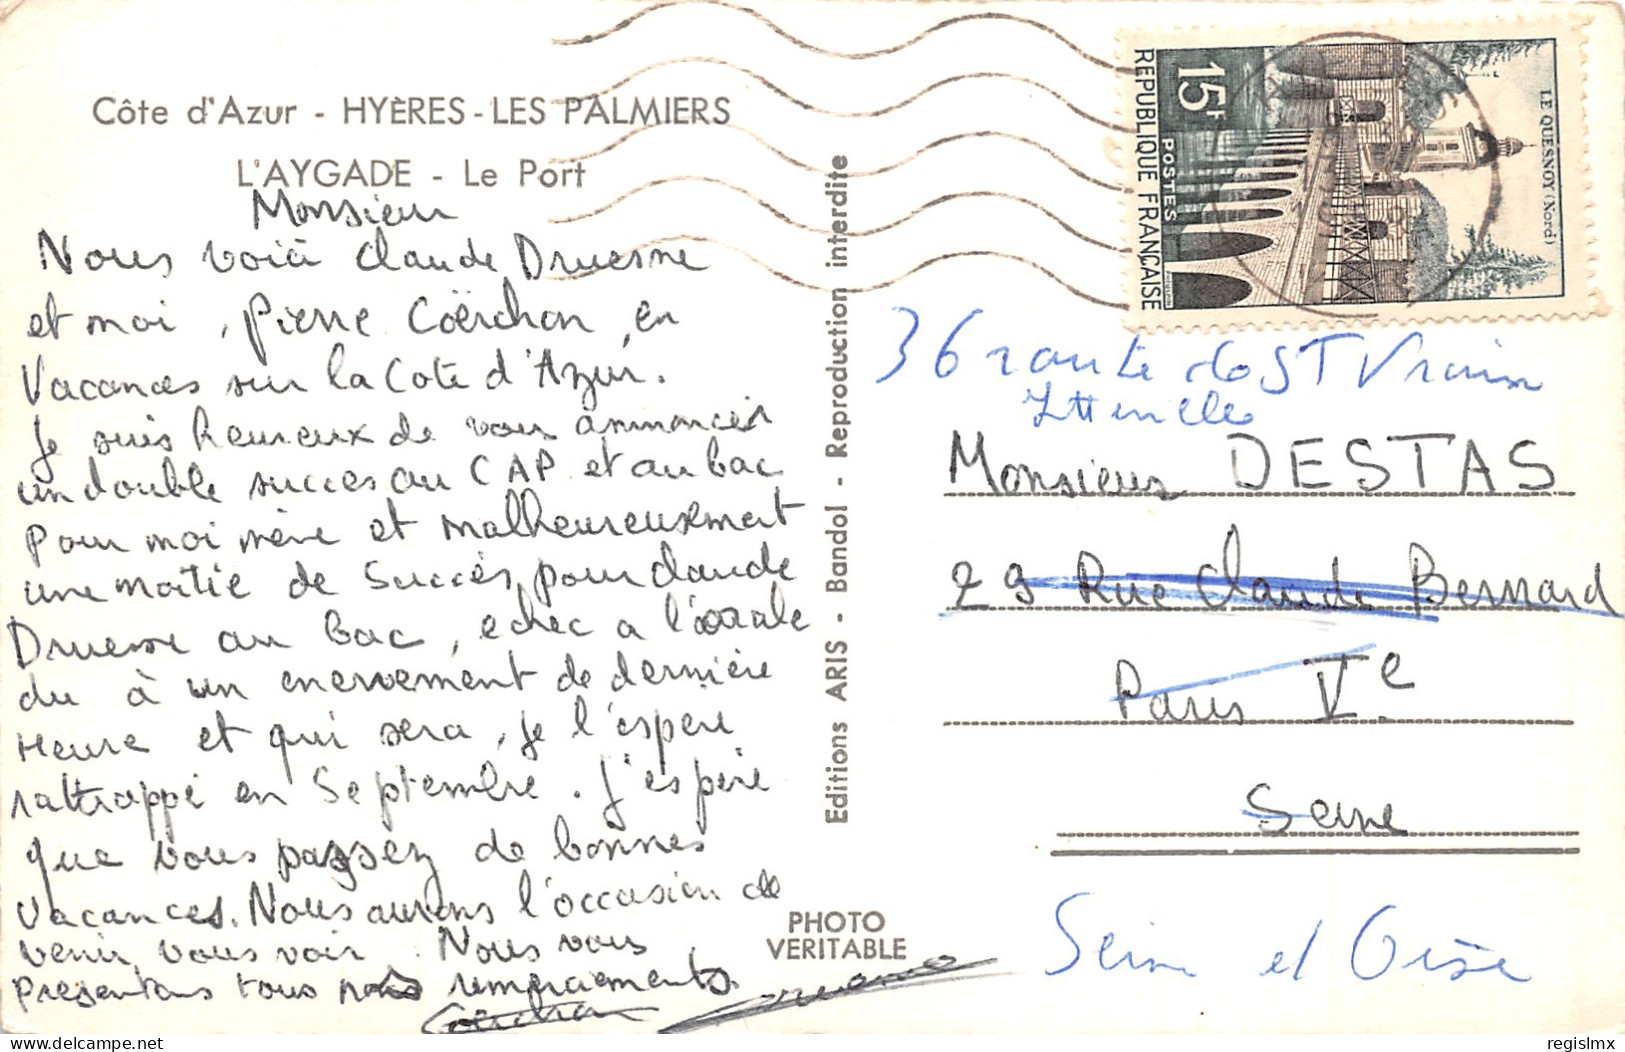 Côte d'Azur - HYÈRES-LES PALMIERS
L'AYGADE - Le Port
Monsieur
Nous voici Claude Druesne
et moi, Pierre Coërchon, en
Vacances sur la Cote d'Azur.
Je suis heureux de vous annoncer
un double succes au CAP et au bac
pour moi même et malheureusement
une moitié de succès pour Claude
Druesne au bac, echec a l'orale
du à un enervement de dernière
Heure et qui sera, je l'espere
rattrappé en Septembre. J'espère
que vous passez de bonnes
vacances. Nous aurons l'occasion de
venir vous voir. Nous vous
presentons tous nos remerciements.
Coerchon Druesne
Editions ARIS - Bandol - Reproduction interdite
PHOTO
VERITABLE
15f
POSTES
REPUBLIQUE FRANÇAISE
LE QUESNOY (Nord)
36 route de ST Vrain
Itteville
Monsieur DESTAS
29 Rue Claude Bernard
Paris Ve
Seine
Seine et Oise
regislmx